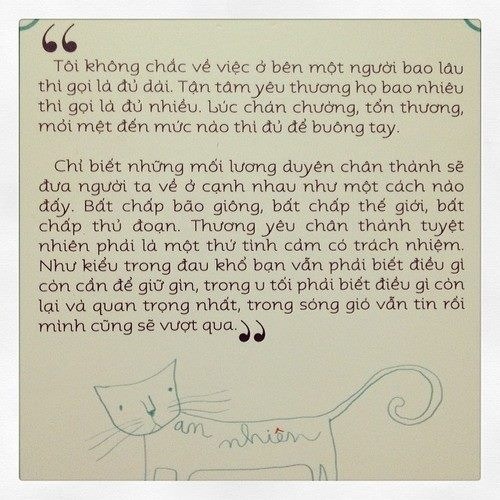 “
Tôi không chắc về việc ở bên một người bao lâu
thì gọi là đủ dài. Tận tâm yêu thương họ bao nhiêu
thì gọi là đủ nhiều. Lúc chán chường, tổn thương,
mỏi mệt đến mức nào thì đủ để buông tay.
Chỉ biết những mối lương duyên chân thành sẽ
đưa người ta về ở cạnh nhau như một cách nào
đấy. Bất chấp bão giông, bất chấp thế giới, bất
chấp thủ đoạn. Thương yêu chân thành tuyệt
nhiên phải là một thứ tình cảm có trách nhiệm.
Như kiểu trong đau khổ bạn vẫn phải biết điều gì
còn cần để giữ gìn, trong u tối phải biết điều gì còn
lại và quan trọng nhất, trong sóng gió vẫn tin rồi
mình cũng sẽ vượt qua.”
an nhiên